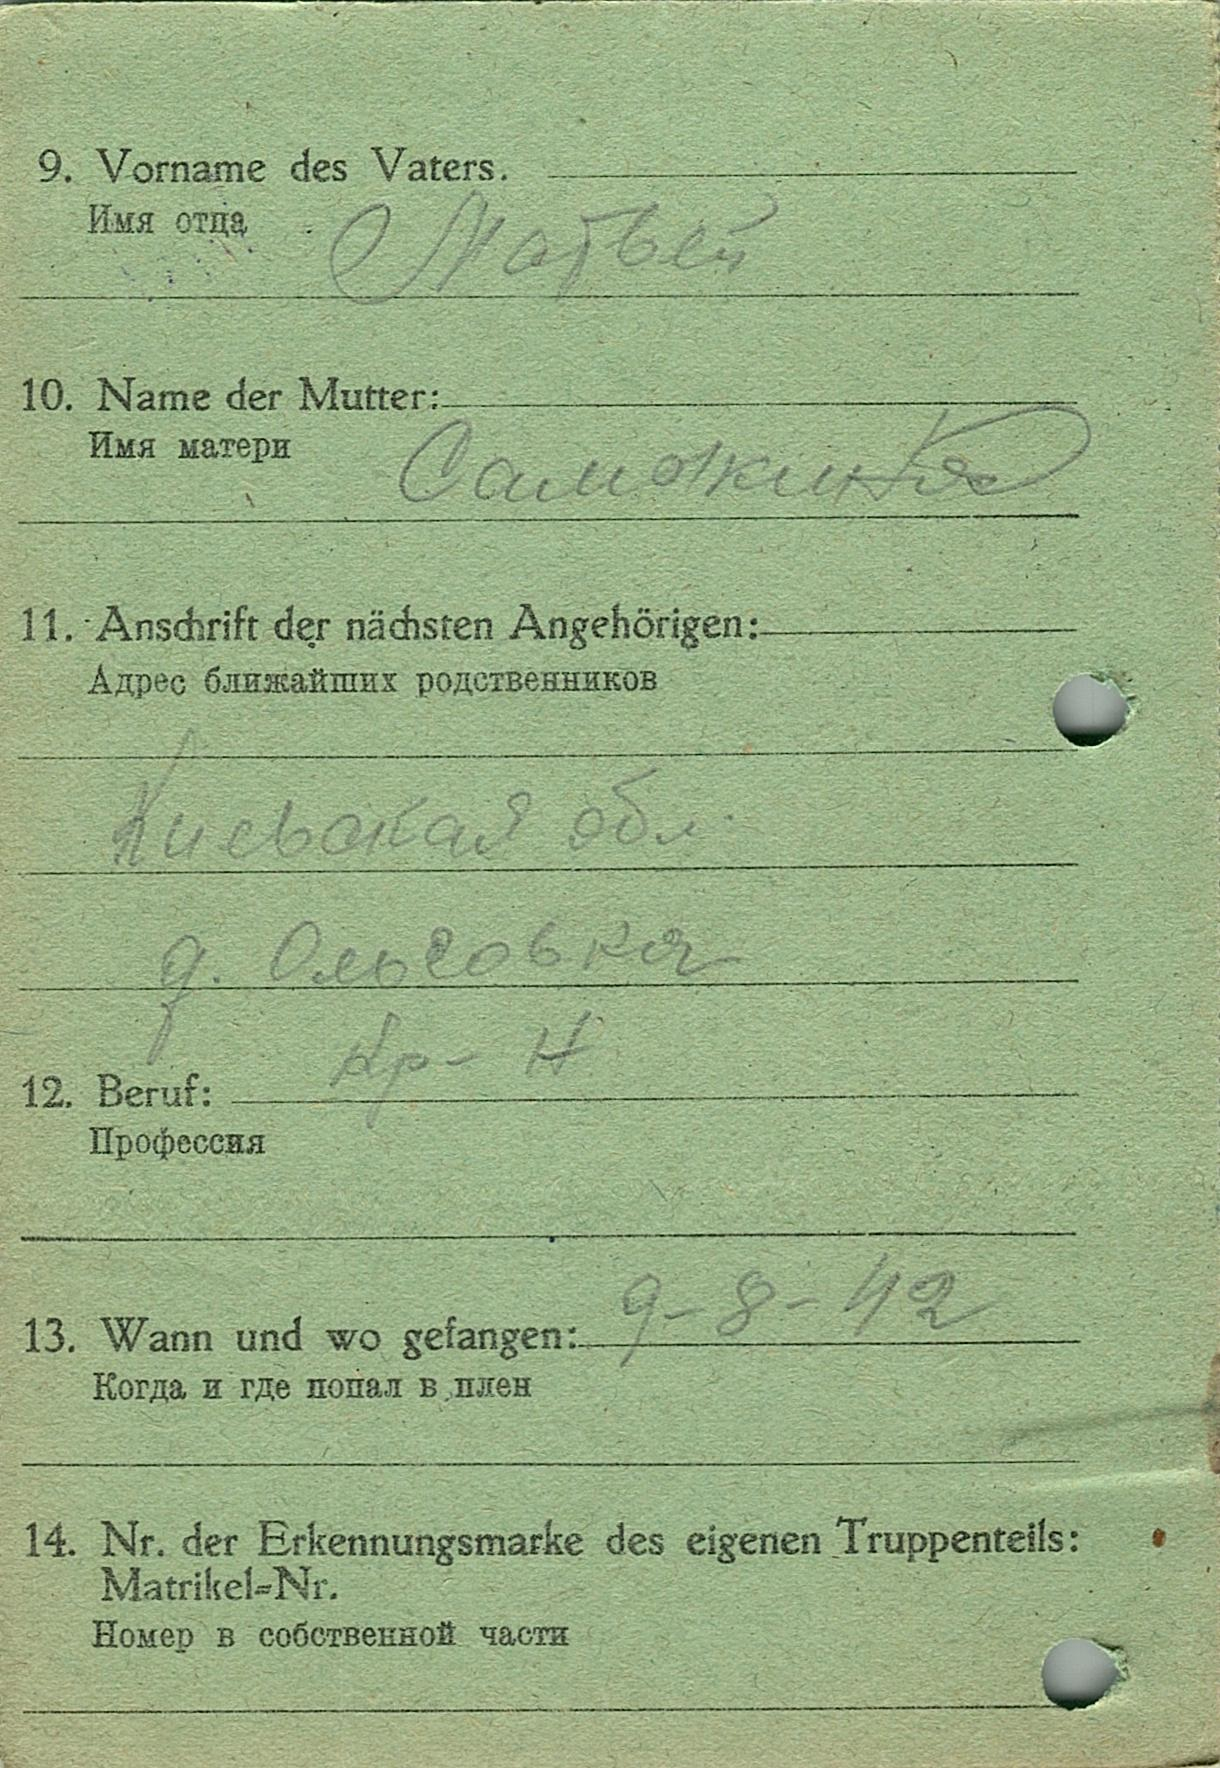 9. Vorname des Vaters.
Имя отца
Матвей
10. Name der Mutter:
Имя матери
11. Anschrift der nächsten Angehörigen:
Адрес ближайших родственников
Киевская обл.
д. Ольговка
12. Beruf:
Кр-н
Профессия
13. Wann und wo gefangen: 9-8-42
Когда и где попал в плен
14. Nr. der Erkennungsmarke des eigenen Truppenteils:
Matrikel=Nr.
Номер в собственной части